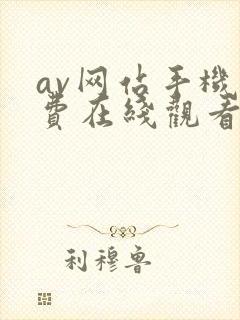 av网佔手機
費在綫觀看
利穆鲁